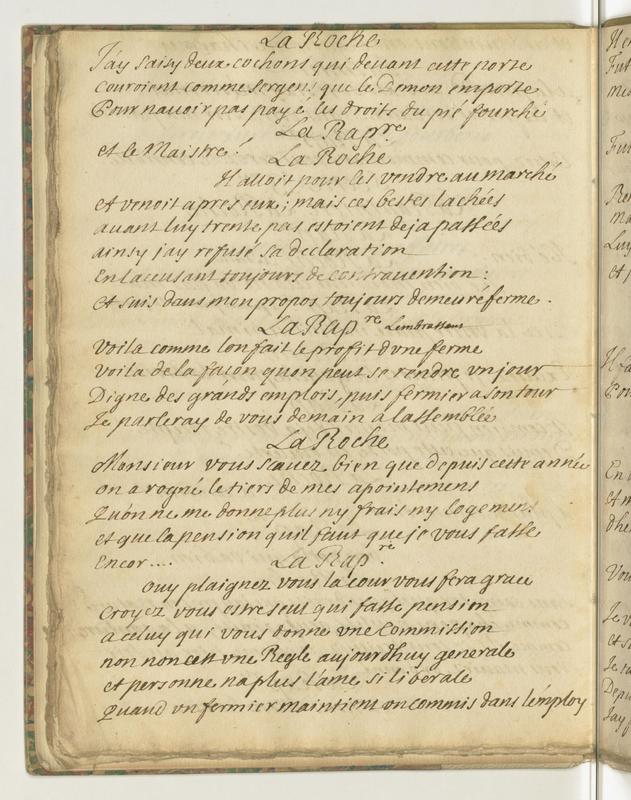 La Roche
J'ay saisy deux cochons qui devant cette porte
couroient comme sergens que le Demon emporte
Pour navoir pas payé les droits du pié fourché
La Rapre
et le Maistre?
La Roche
Il alloit pour les vendre au marché
et venoit apres eux; mais ces bestes lachées
avant luy trente pas estoient deja passées
ainsy jay refusé sa declaration
En lacusant toujours de contravention:
et suis dans mon propos toujours demeuré ferme.
La Rapre Lembrassant
Voila comme lon fait le profit dvne ferme
Voila de la façon quon peut se rendre vn jour
Digne des grands emplois, puis fermier a son tour
Je parleray de vous demain a lassemblée
La Roche
Monsieur vous scavez bien que depuis cette année
on a rogné le tiers de mes apointemens
Quon ne me donne plus ny frais ny logemens
et que la pension quil faut que je vous fasse
Encor....
La Rapre
Ouy plaignez vous la cour vous fera grace
Croyez vous estre seul qui fasse pension
a celuy qui vous donne vne Commission
non non cest vne Regle aujourdhuy generale
et personne na plus l'ame si liberale
Quand vn fermier maintient vn commis dans lemploy